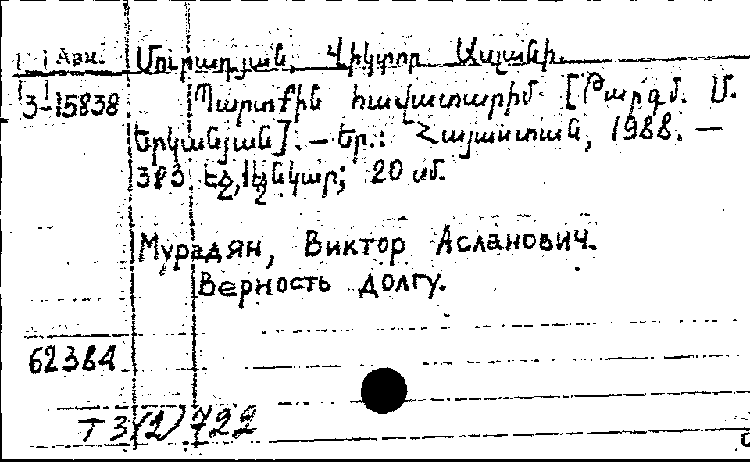 Ավն. Մուրադյան, Վիկտոր Ասլանի.
3-15838 Պարտքին հավատարիմ [Թարգմ. Մ.
Երկանյան]. – Եր.: Հայաստան, 1988. –
383 էջ, 1էջ նկար; 20 սմ.
Мурадян, Виктор Асланович.
Верность долгу.
62384
Т3(2)722